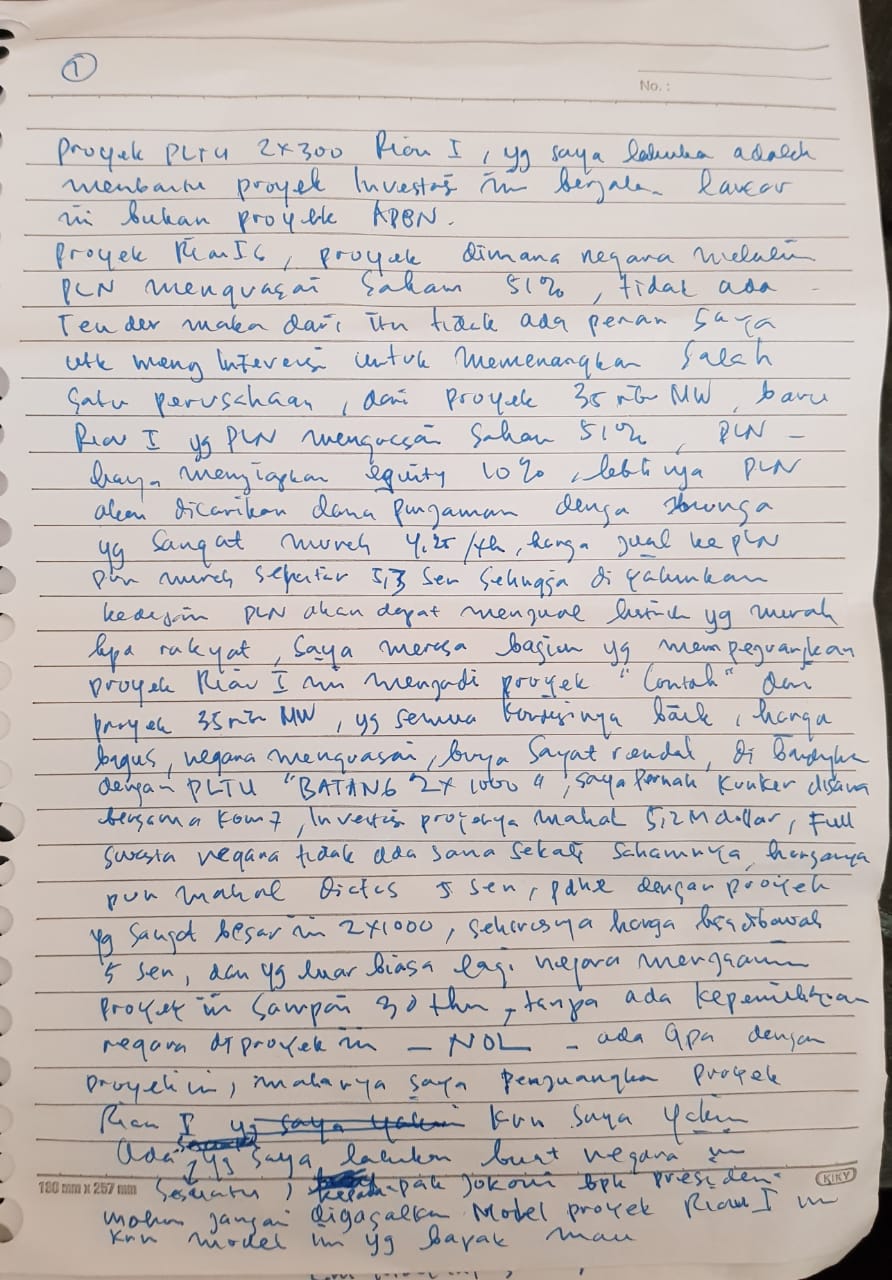 1
No. :
Proyek PLTU 2x300 Riau I, yg saya lakukan adalah
membantu proyek Investasi ini berjalan lancar
ini bukan proyek APBN.
Proyek Riau I, proyek dimana negara melalui
PLN menguasai Saham 51%, tidak ada
Tender maka dari itu tidak ada peran Saya
utk mengintervensi untuk memenangkan Salah
Satu perusahaan, dari proyek 35 ribu MW, baru
Riau I yg PLN menguasai Saham 51%, PLN -
hanya menyiapkan equity 10%, lebihnya PLN
akan dicarikan dana pinjaman dengan bunga
yg Sangat murah 4,25/th, harga jual ke PLN
pun murah sekitar 5,3 Sen Sehingga di
PLN akan dapat menjual listrik yg murah
kpa rakyat, Saya merasa bagian yg memperjuangkan
proyek Riau I ini menjadi proyek "Contoh" dari
proyek 35 ribu MW, yg semua kondisinya baik, harga
bagus, negara menguasai, bunga Sangat rendah, di
dengan PLTU "BATANG 2x1000", saya Pernah Kunker disana
bersama Kom 7, Investasi proyeknya mahal 5,2 M dollar, Full
Swasta negara tidak ada sama sekali Sahamnya, harganya
pun mahal diatas 5 sen, pdhl dengan proyek
yg Sangat besar ini 2x1000, seharusnya harga bisa dibawah
5 sen, dan yg luar biasa lagi negara menjamin
Proyek ini Sampai 30 thn, tanpa ada kepemilikan
negara di proyek ini - NOL - ada apa dengan
Proyek ini, makanya saya Perjuangkan Proyek
Riau I krn Saya Yakin
Ada yg Saya lakukan buat negara ini
180 mm x 257 mm
KIKY
Sesuatu, pak Jokowi bpk presiden
mohon jangan digagalkan Model proyek Riau I ini
krn model ini yg bapak mau